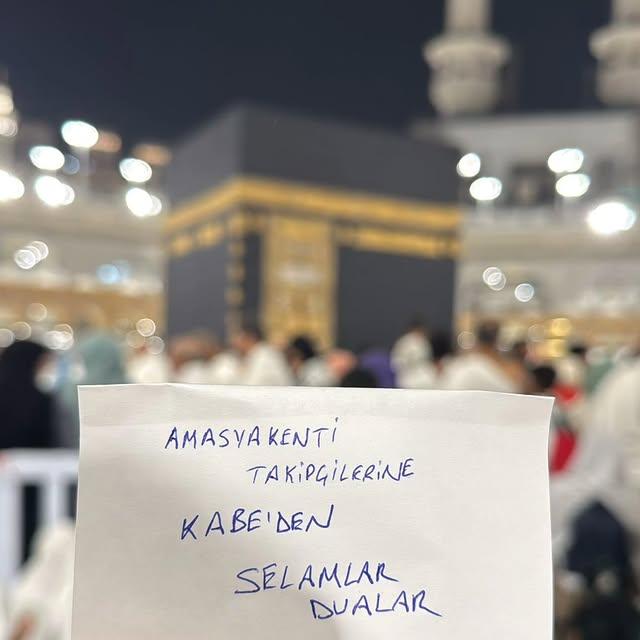 AMASYAKENTİ
TAKİPÇİLERİNE
KABE'DEN
SELAMLAR
DUALAR